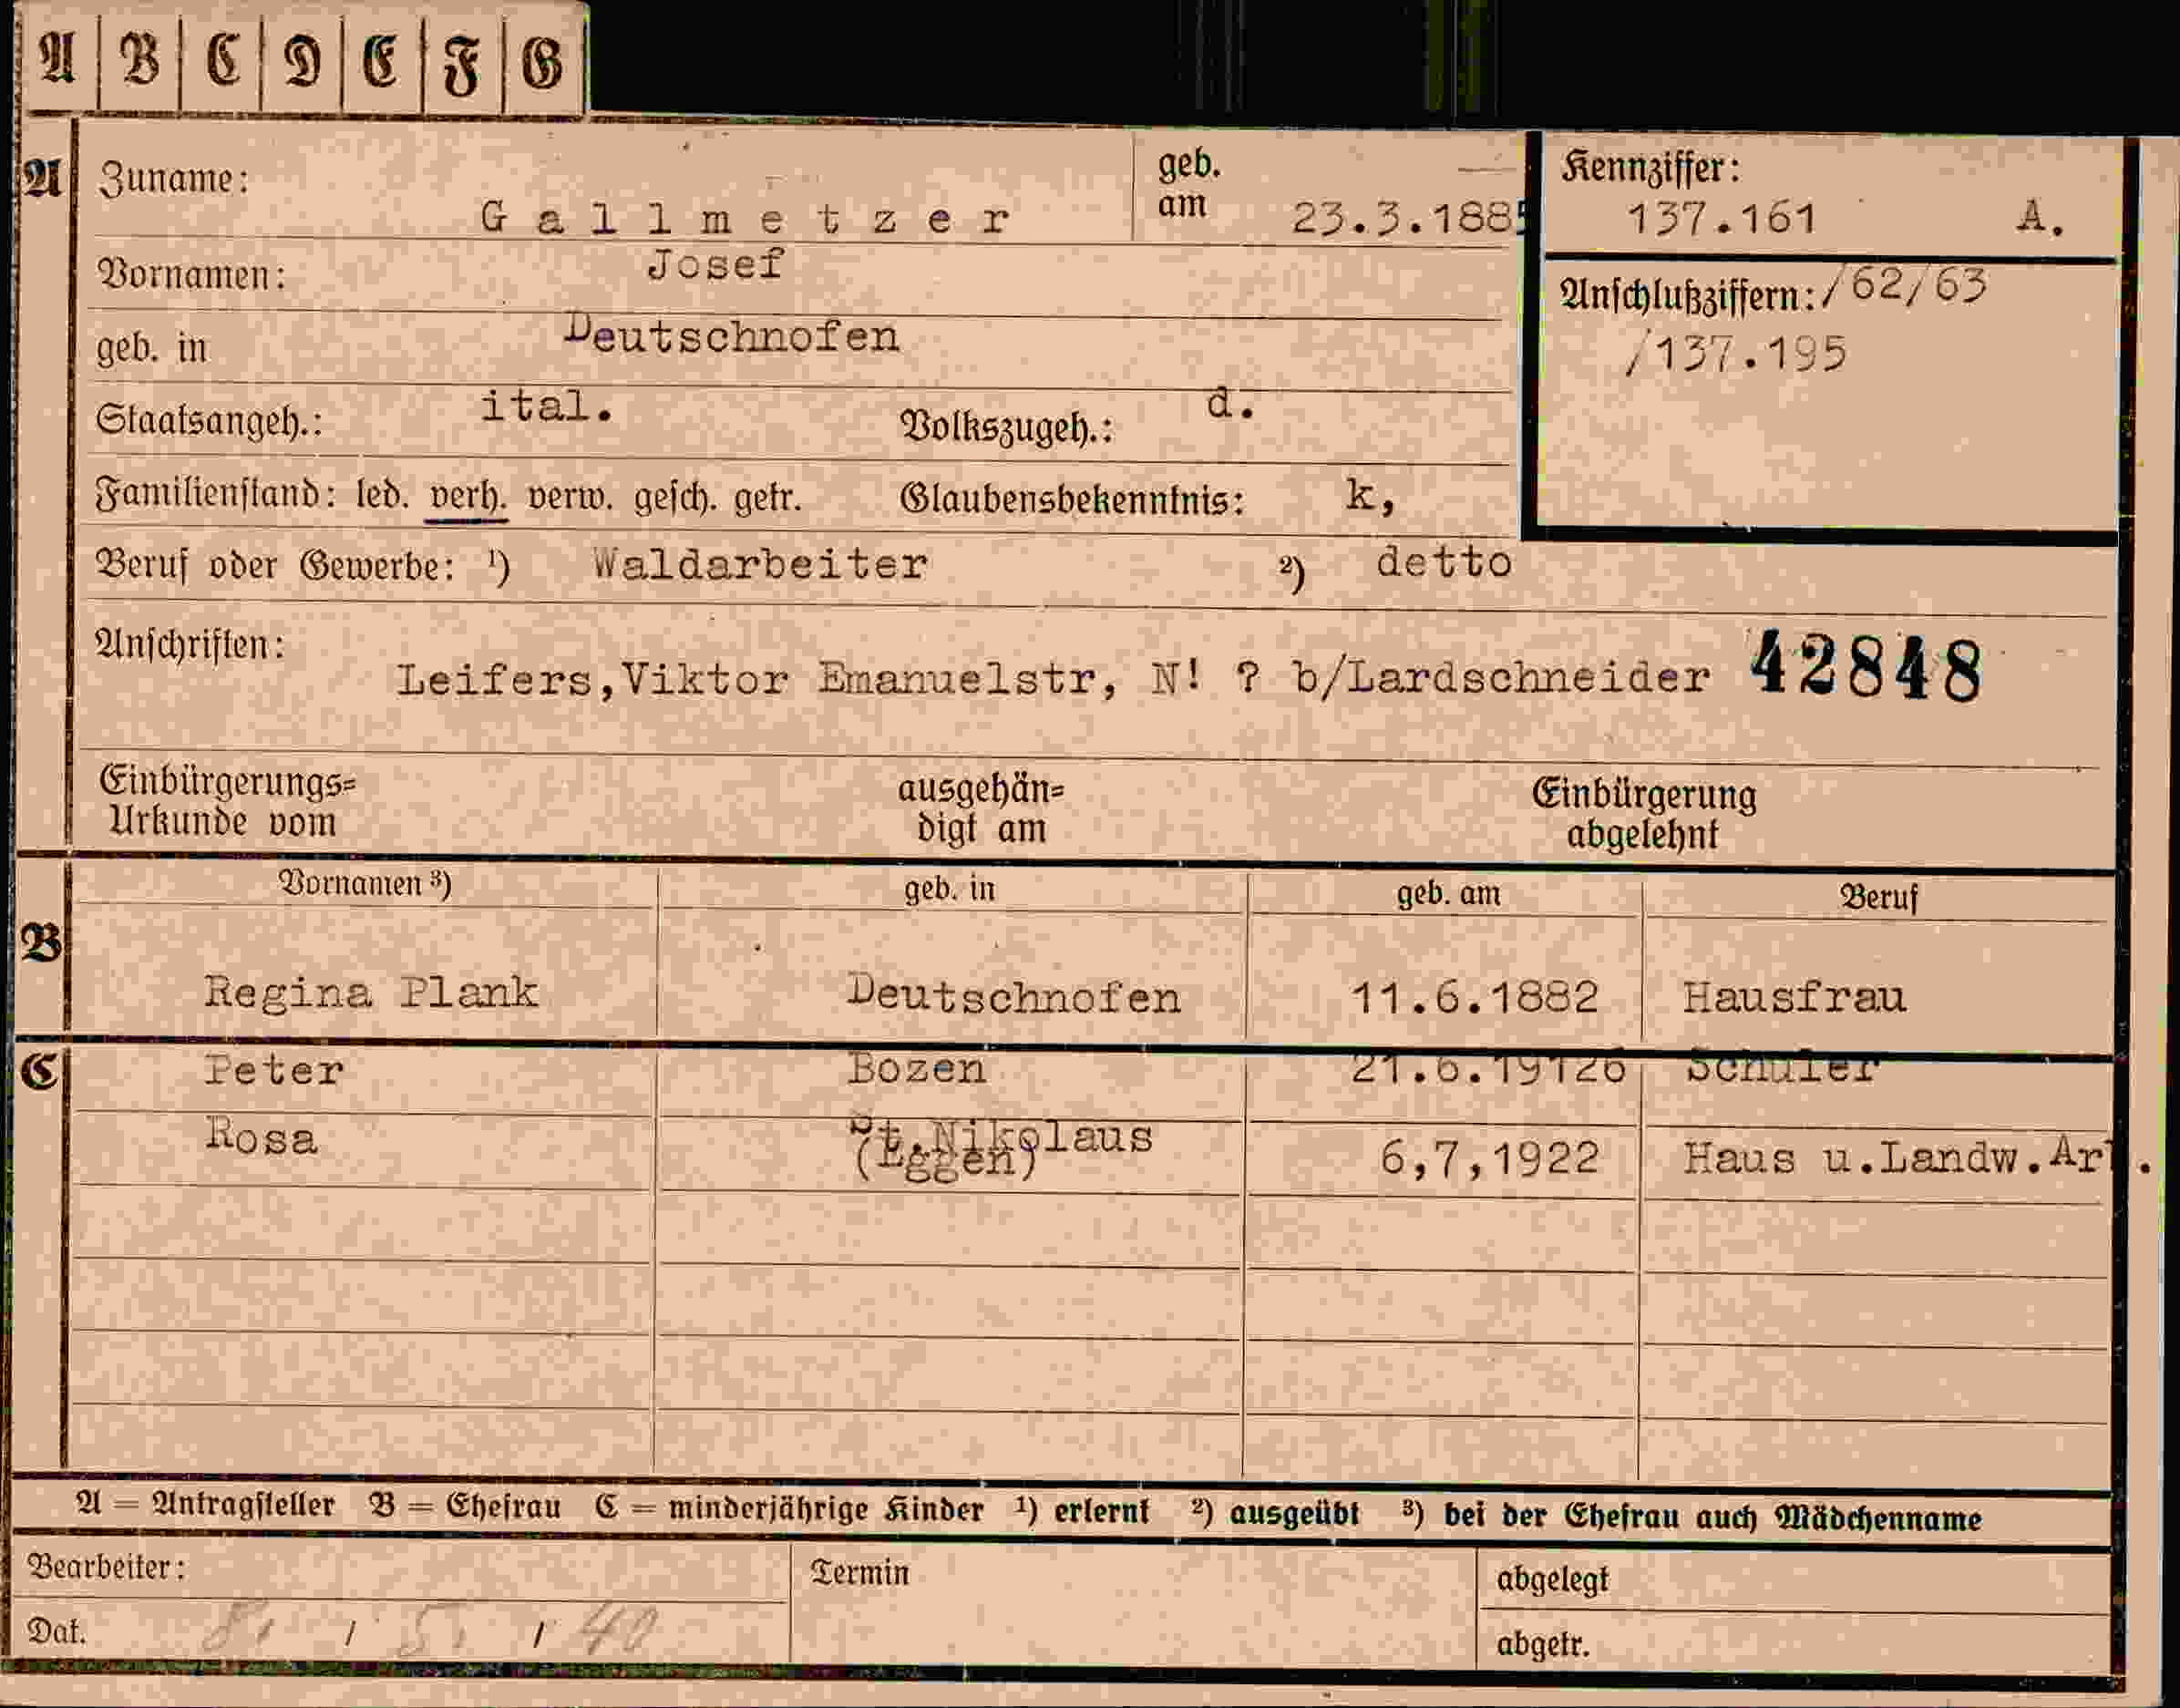 A B C D E F G
A Zuname: Gallmetzer geb. am 23.3.1885 Kennziffer: 137.161 A.
Vornamen: Josef Anschlußziffern: /62/63
/137.195
geb. in Deutschnofen
Staatsangeh.: ital. Volkszugeh.: d.
Familienstand: led. verh. verw. gesch. getr. Glaubensbekenntnis: k,
Beruf oder Gewerbe: ¹) Waldarbeiter ²) detto
Anschriften: Leifers,Viktor Emanuelstr, N! ? b/Lardschneider 42848
Einbürgerungs= ausgehän= Einbürgerung
Urkunde vom digt am abgelehnt
Vornamen ³) geb. in geb. am Beruf
B Regina Plank Deutschnofen 11.6.1882 Hausfrau
C Peter Bozen 21.6.19126 Schüler
Rosa St.Nikolaus (Eggen) 6,7,1922 Haus u.Landw.Arb.
A = Antragsteller B = Ehefrau C = minderjährige Kinder ¹) erlernt ²) ausgeübt ³) bei der Ehefrau auch Mädchenname
Bearbeiter: Termin abgelegt
Dat. 8. / 5. / 40 abgetr.